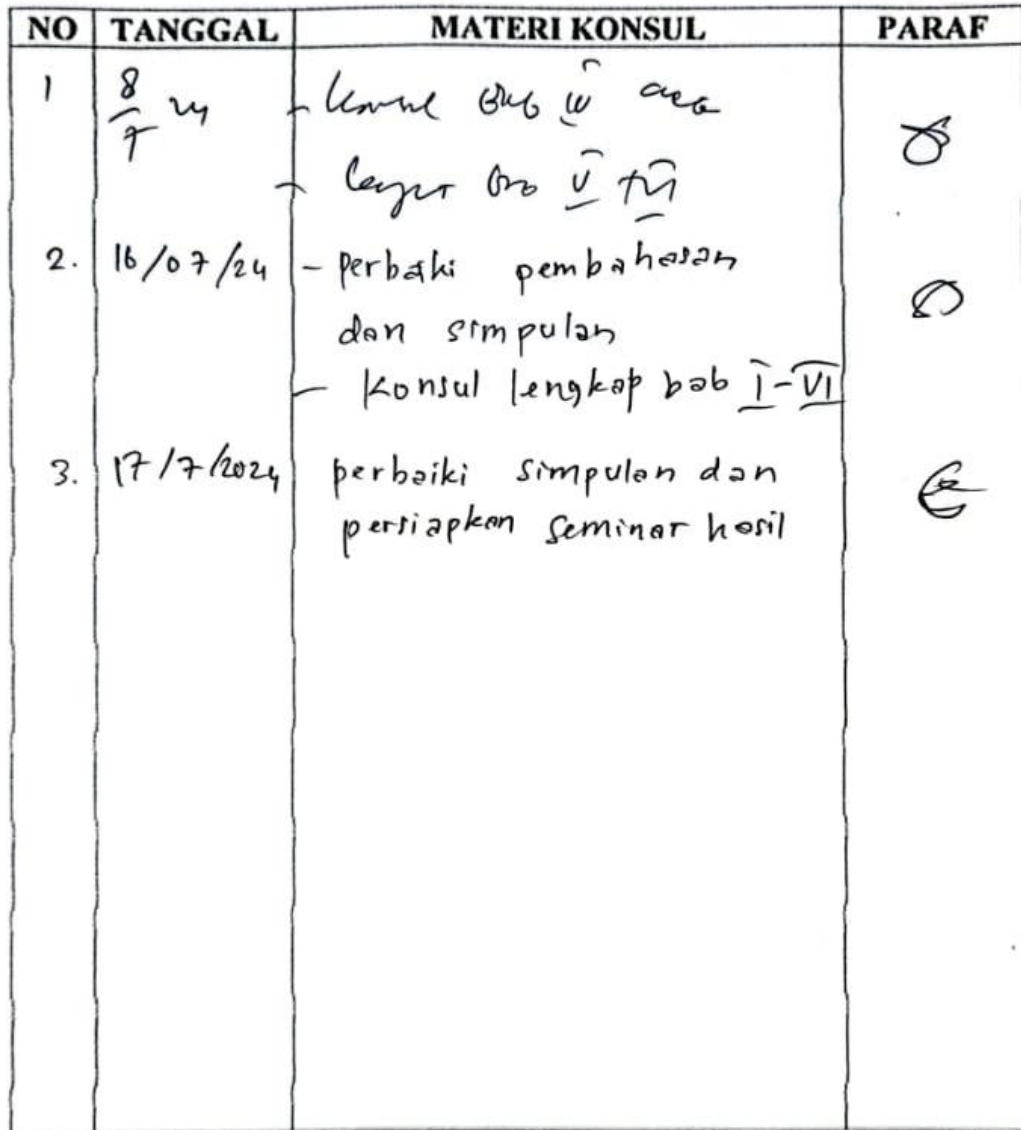 NO TANGGAL MATERI KONSUL PARAF
1 8/7 24 - Konsul Bab IV acc
- Lanjut Bab V VI
2. 16/07/24 - Perbaiki pembahasan
dan simpulan
- Konsul lengkap bab I-VI
3. 17/7/2024 perbaiki simpulan dan
persiapkan seminar hasil